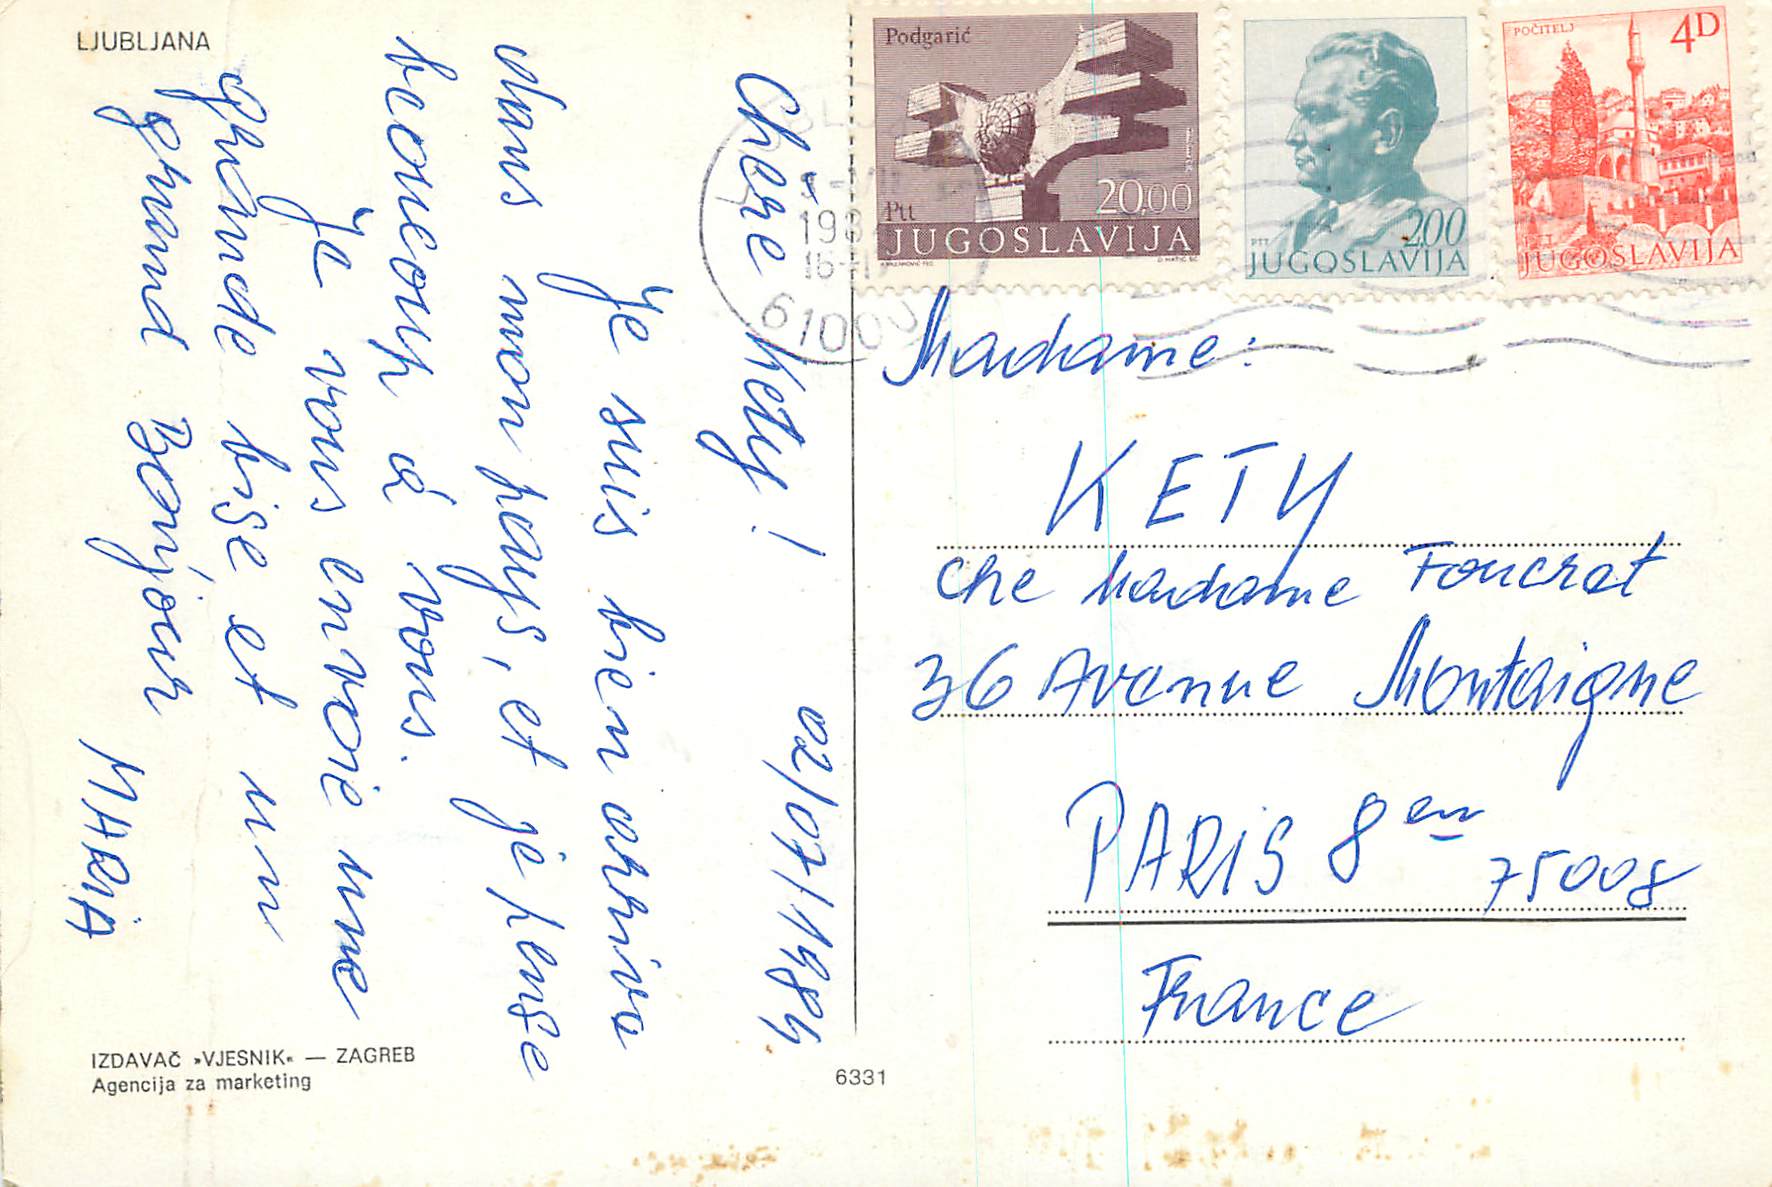 LJUBLJANA
02/07/1984
Chere Kety!
Je suis bien arriva
dans mon pays, et je pense
beoucoup à vous.
Je vous envoie une
grande bise et un
grand Bonjour
MARIA
IZDAVAČ »VJESNIK« — ZAGREB
Agencija za marketing
6331
Podgarić
Ptt
20,00
JUGOSLAVIJA
PTT
2,00
JUGOSLAVIJA
POČITELJ
4D
PTT
JUGOSLAVIJA
61000
Madame:
KETY
che Madame Foucrat
36 Avenue Montaigne
PARIS 8en 75008
France